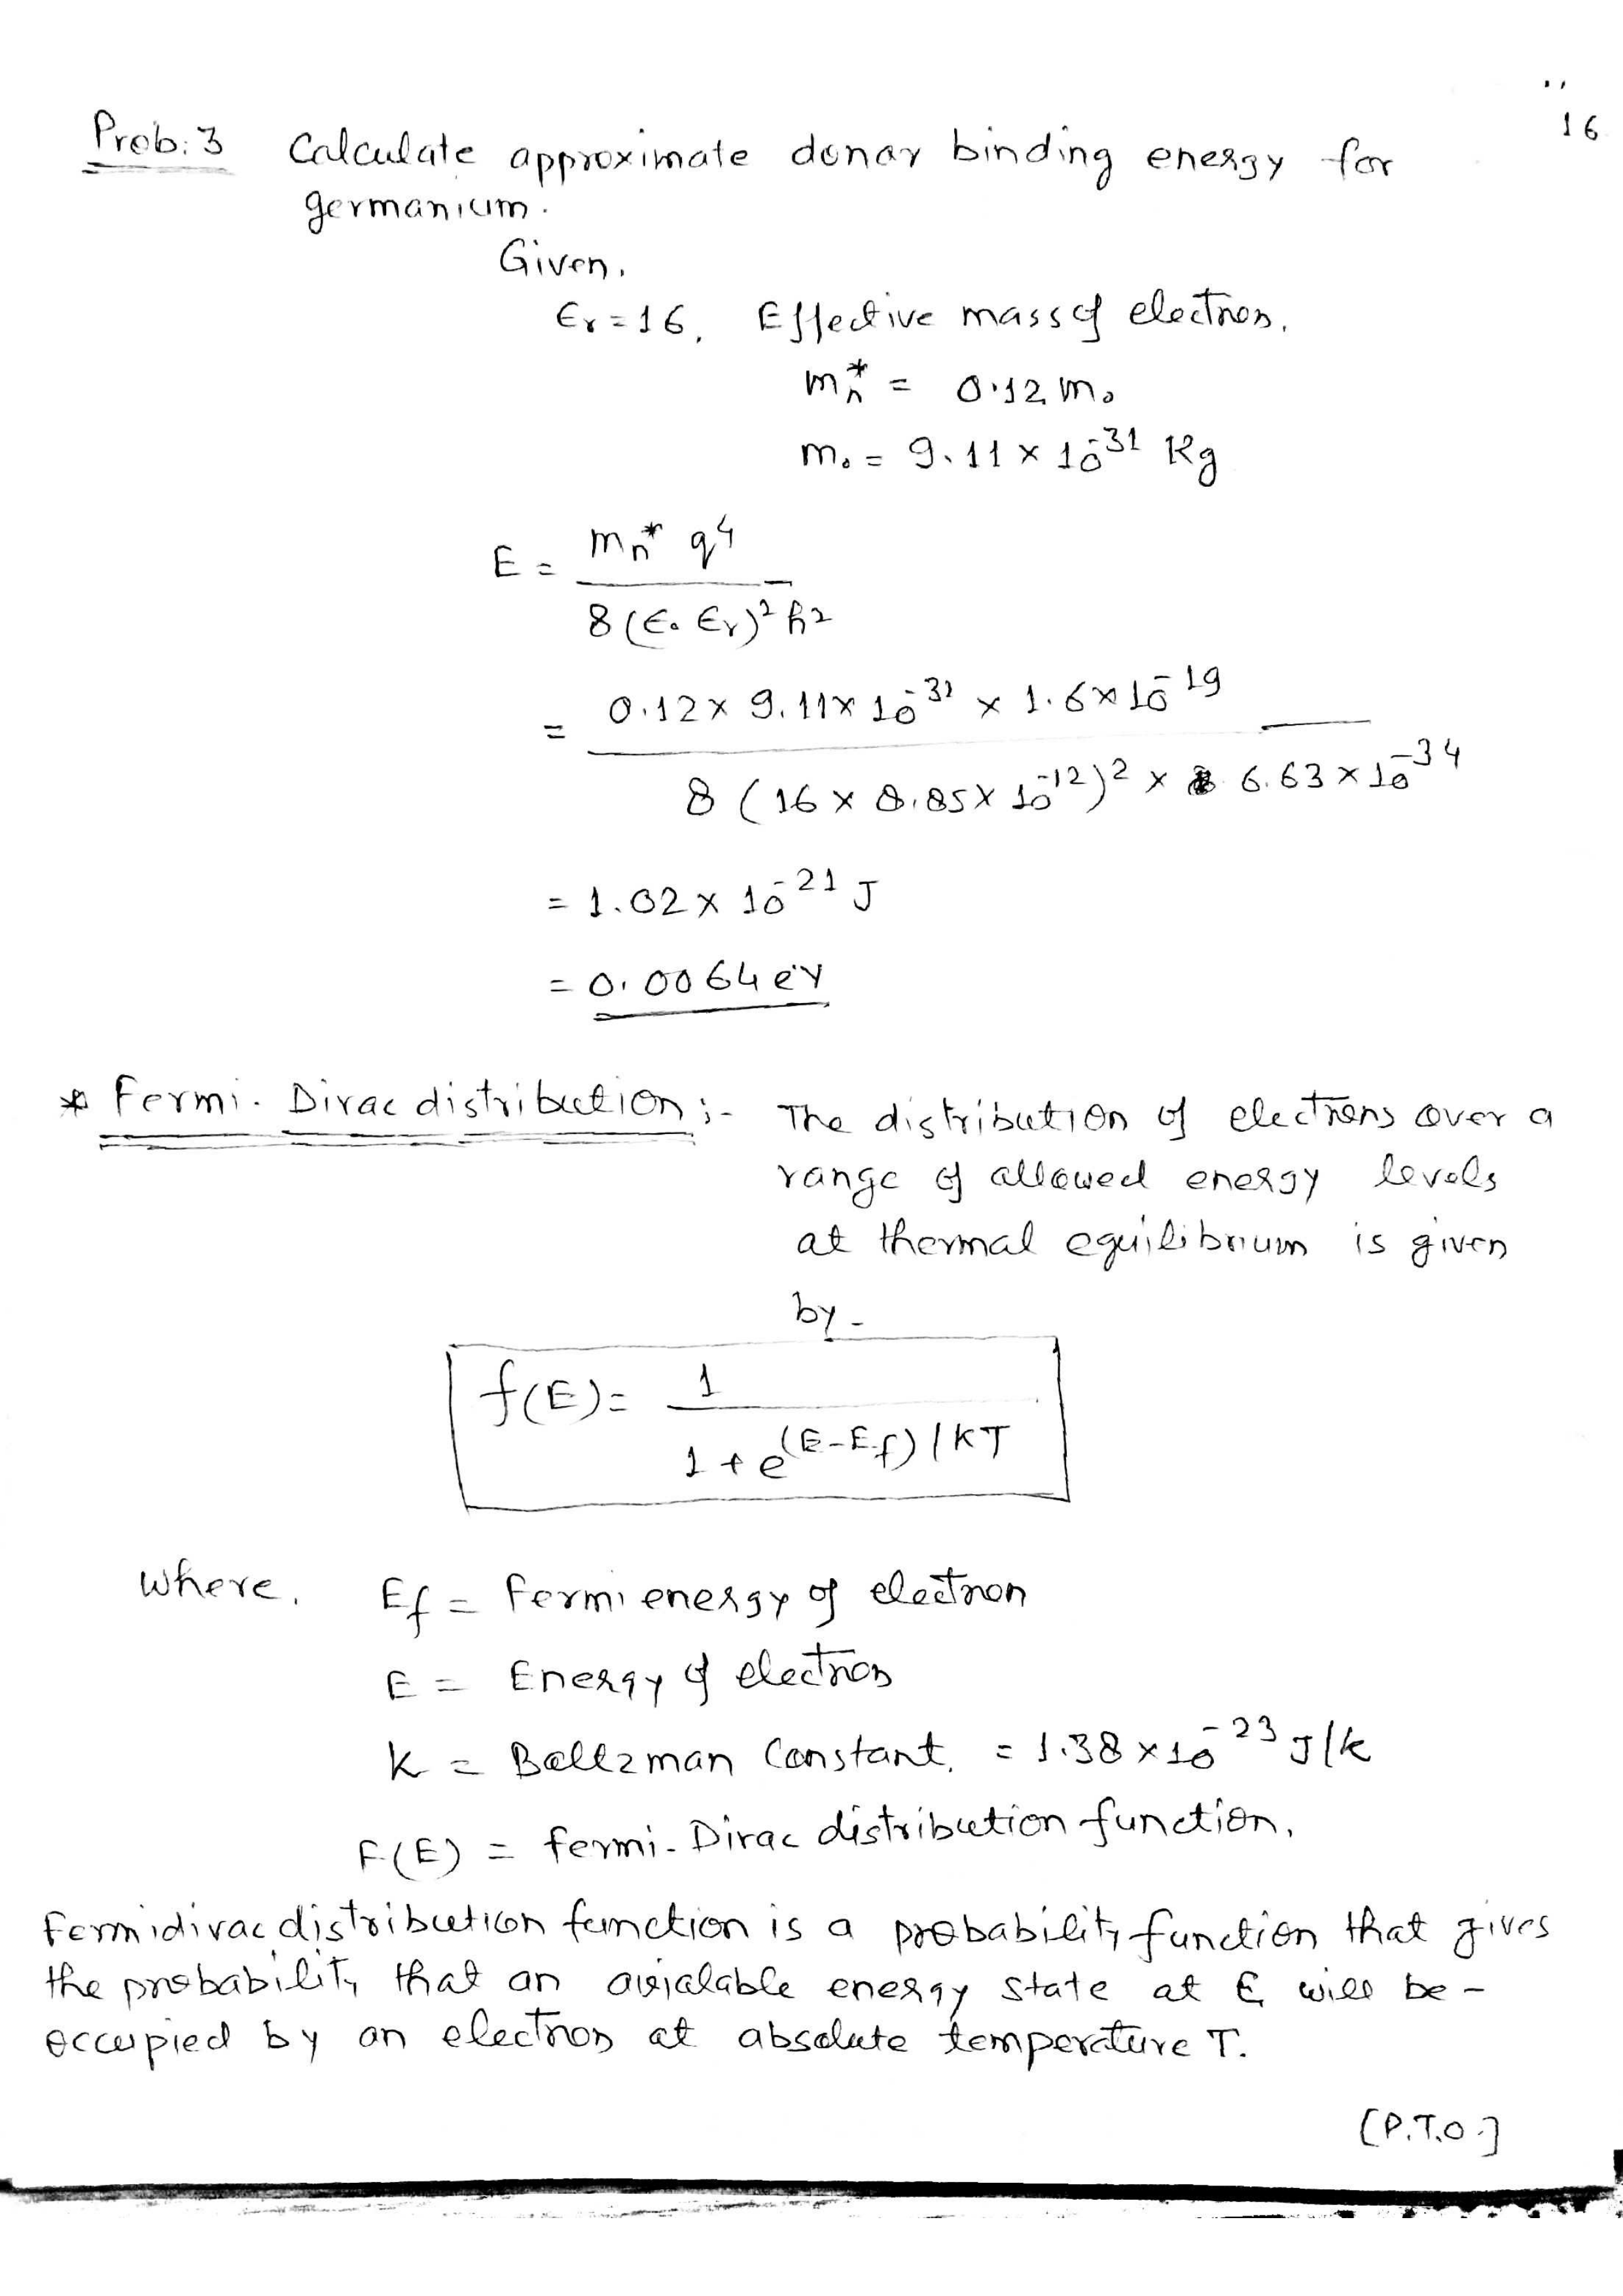 16
Prob: 3 Calculate approximate donar binding energy for
germanium.
Given,
Єr = 16, Effective mass of electron,
mn* = 0.12 m₀
m₀ = 9.11 × 10⁻³¹ Kg
E = mn* q⁴ / 8 (Є₀ Єr)² h²
= 0.12 × 9.11 × 10⁻³¹ × 1.6 × 10⁻¹⁹ / 8 (16 × 8.85 × 10⁻¹²)² × 6.63 × 10⁻³⁴
= 1.02 × 10⁻²¹ J
= 0.0064 eV
* Fermi - Dirac distribution :- The distribution of electrons over a
range of allowed energy levels
at thermal equilibrium is given
by -
f(E) = 1 / 1 + e^(E-Ef) / KT
where, Ef = Fermi energy of electron
E = Energy of electron
K = Boltzman Constant, = 1.38 × 10⁻²³ J/k
F(E) = fermi - Dirac distribution function.
Fermidirac distribution function is a probability function that gives
the probability that an avialable energy state at E will be -
occupied by an electron at absolute temperature T.
[P.T.O.]